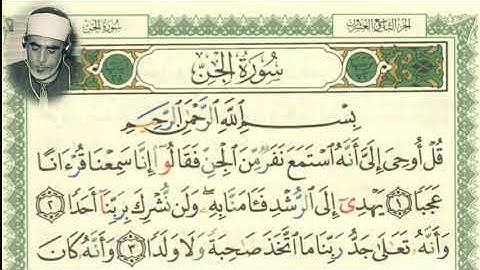 سُورَةُ الجِنّ
الجزء التاسع والعشرون
سُورَةُ الجِنِّ
بِسْمِ ٱللَّهِ ٱلرَّحْمَٰنِ ٱلرَّحِيمِ
قُلْ أُوحِىَ إِلَىَّ أَنَّهُ ٱسْتَمَعَ نَفَرٌ مِّنَ ٱلْجِنِّ فَقَالُوٓا۟ إِنَّا سَمِعْنَا قُرْءَانًا
عَجَبًا ١ يَهْدِىٓ إِلَى ٱلرُّشْدِ فَـَٔامَنَّا بِهِۦ وَلَن نُّشْرِكَ بِرَبِّنَآ أَحَدًا ٢
وَأَنَّهُۥ تَعَٰلَىٰ جَدُّ رَبِّنَا مَا ٱتَّخَذَ صَٰحِبَةً وَلَا وَلَدًا ٣ وَأَنَّهُۥ كَانَ